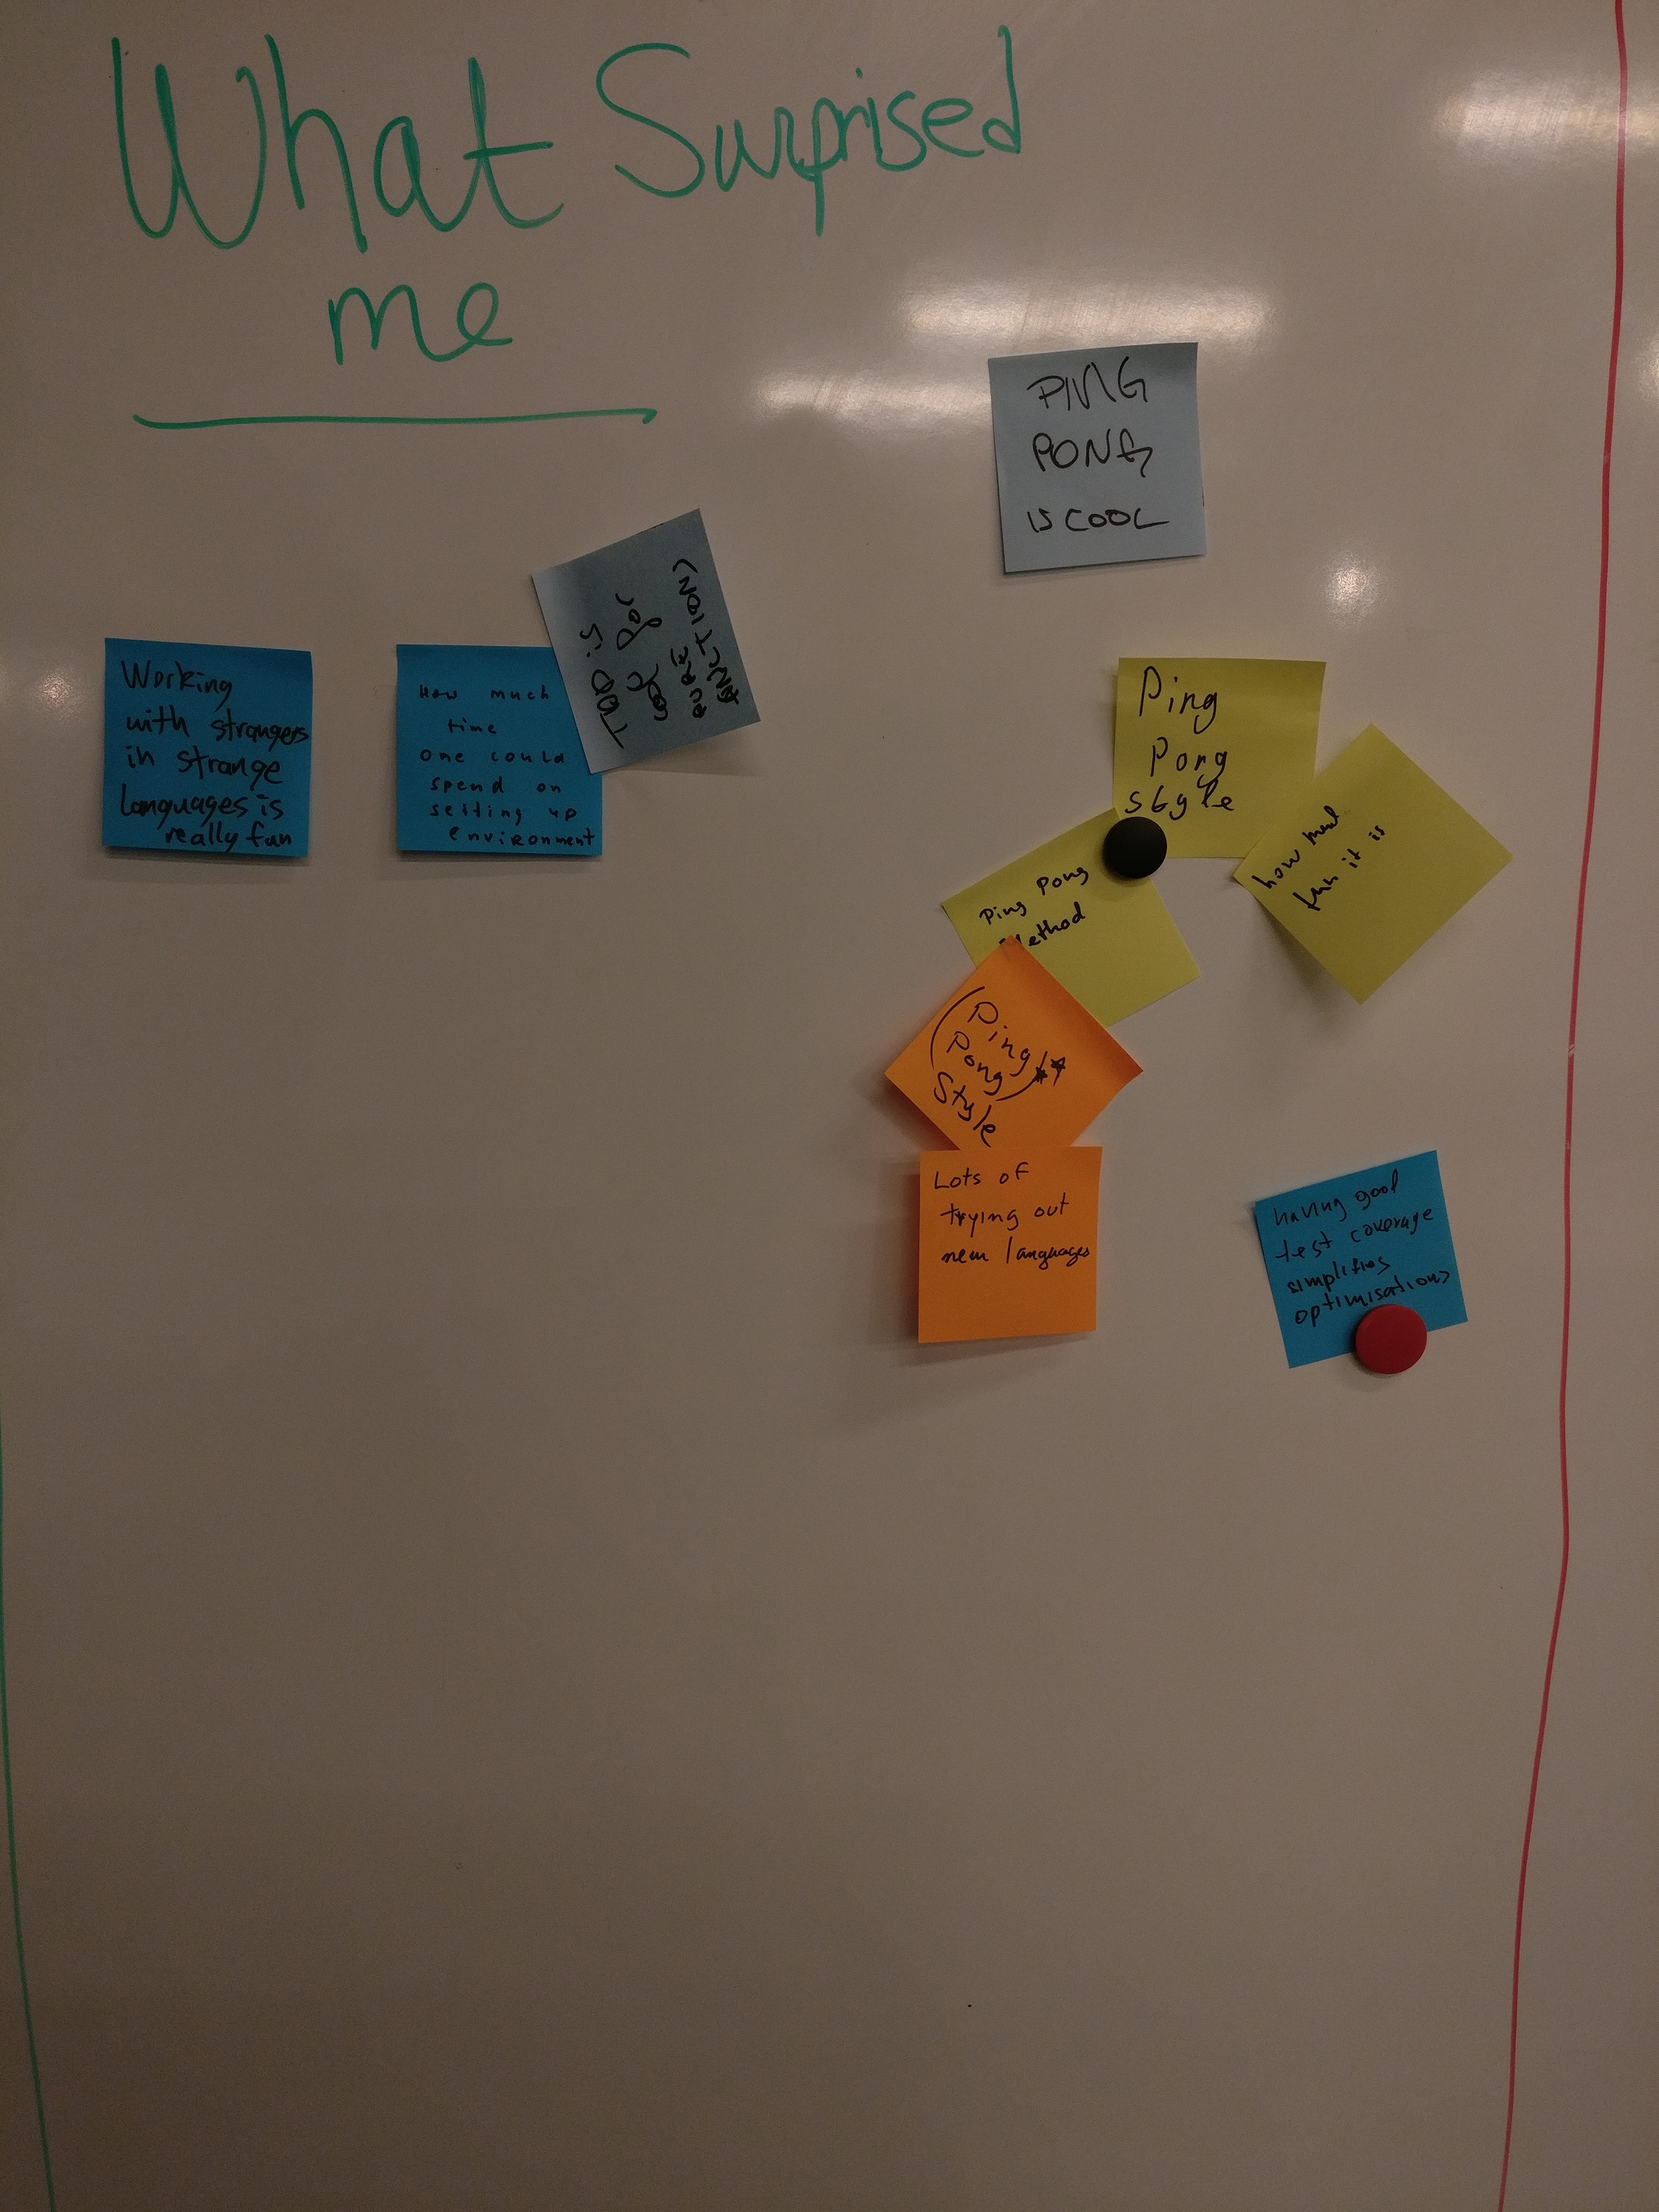 What Surprised
me
PING
PONG
IS COOL
TDD is
cool for
PURE
FUNCTION)
Working
with strangers
in strange
languages is
really fun
How much
time
one could
spend on
setting up
environment
Ping
Pong
style
how much
fun it is
Ping Pong
Method
(Ping
Pong)**
Style
Lots of
trying out
new languages
having good
test coverage
simplifies
optimisations